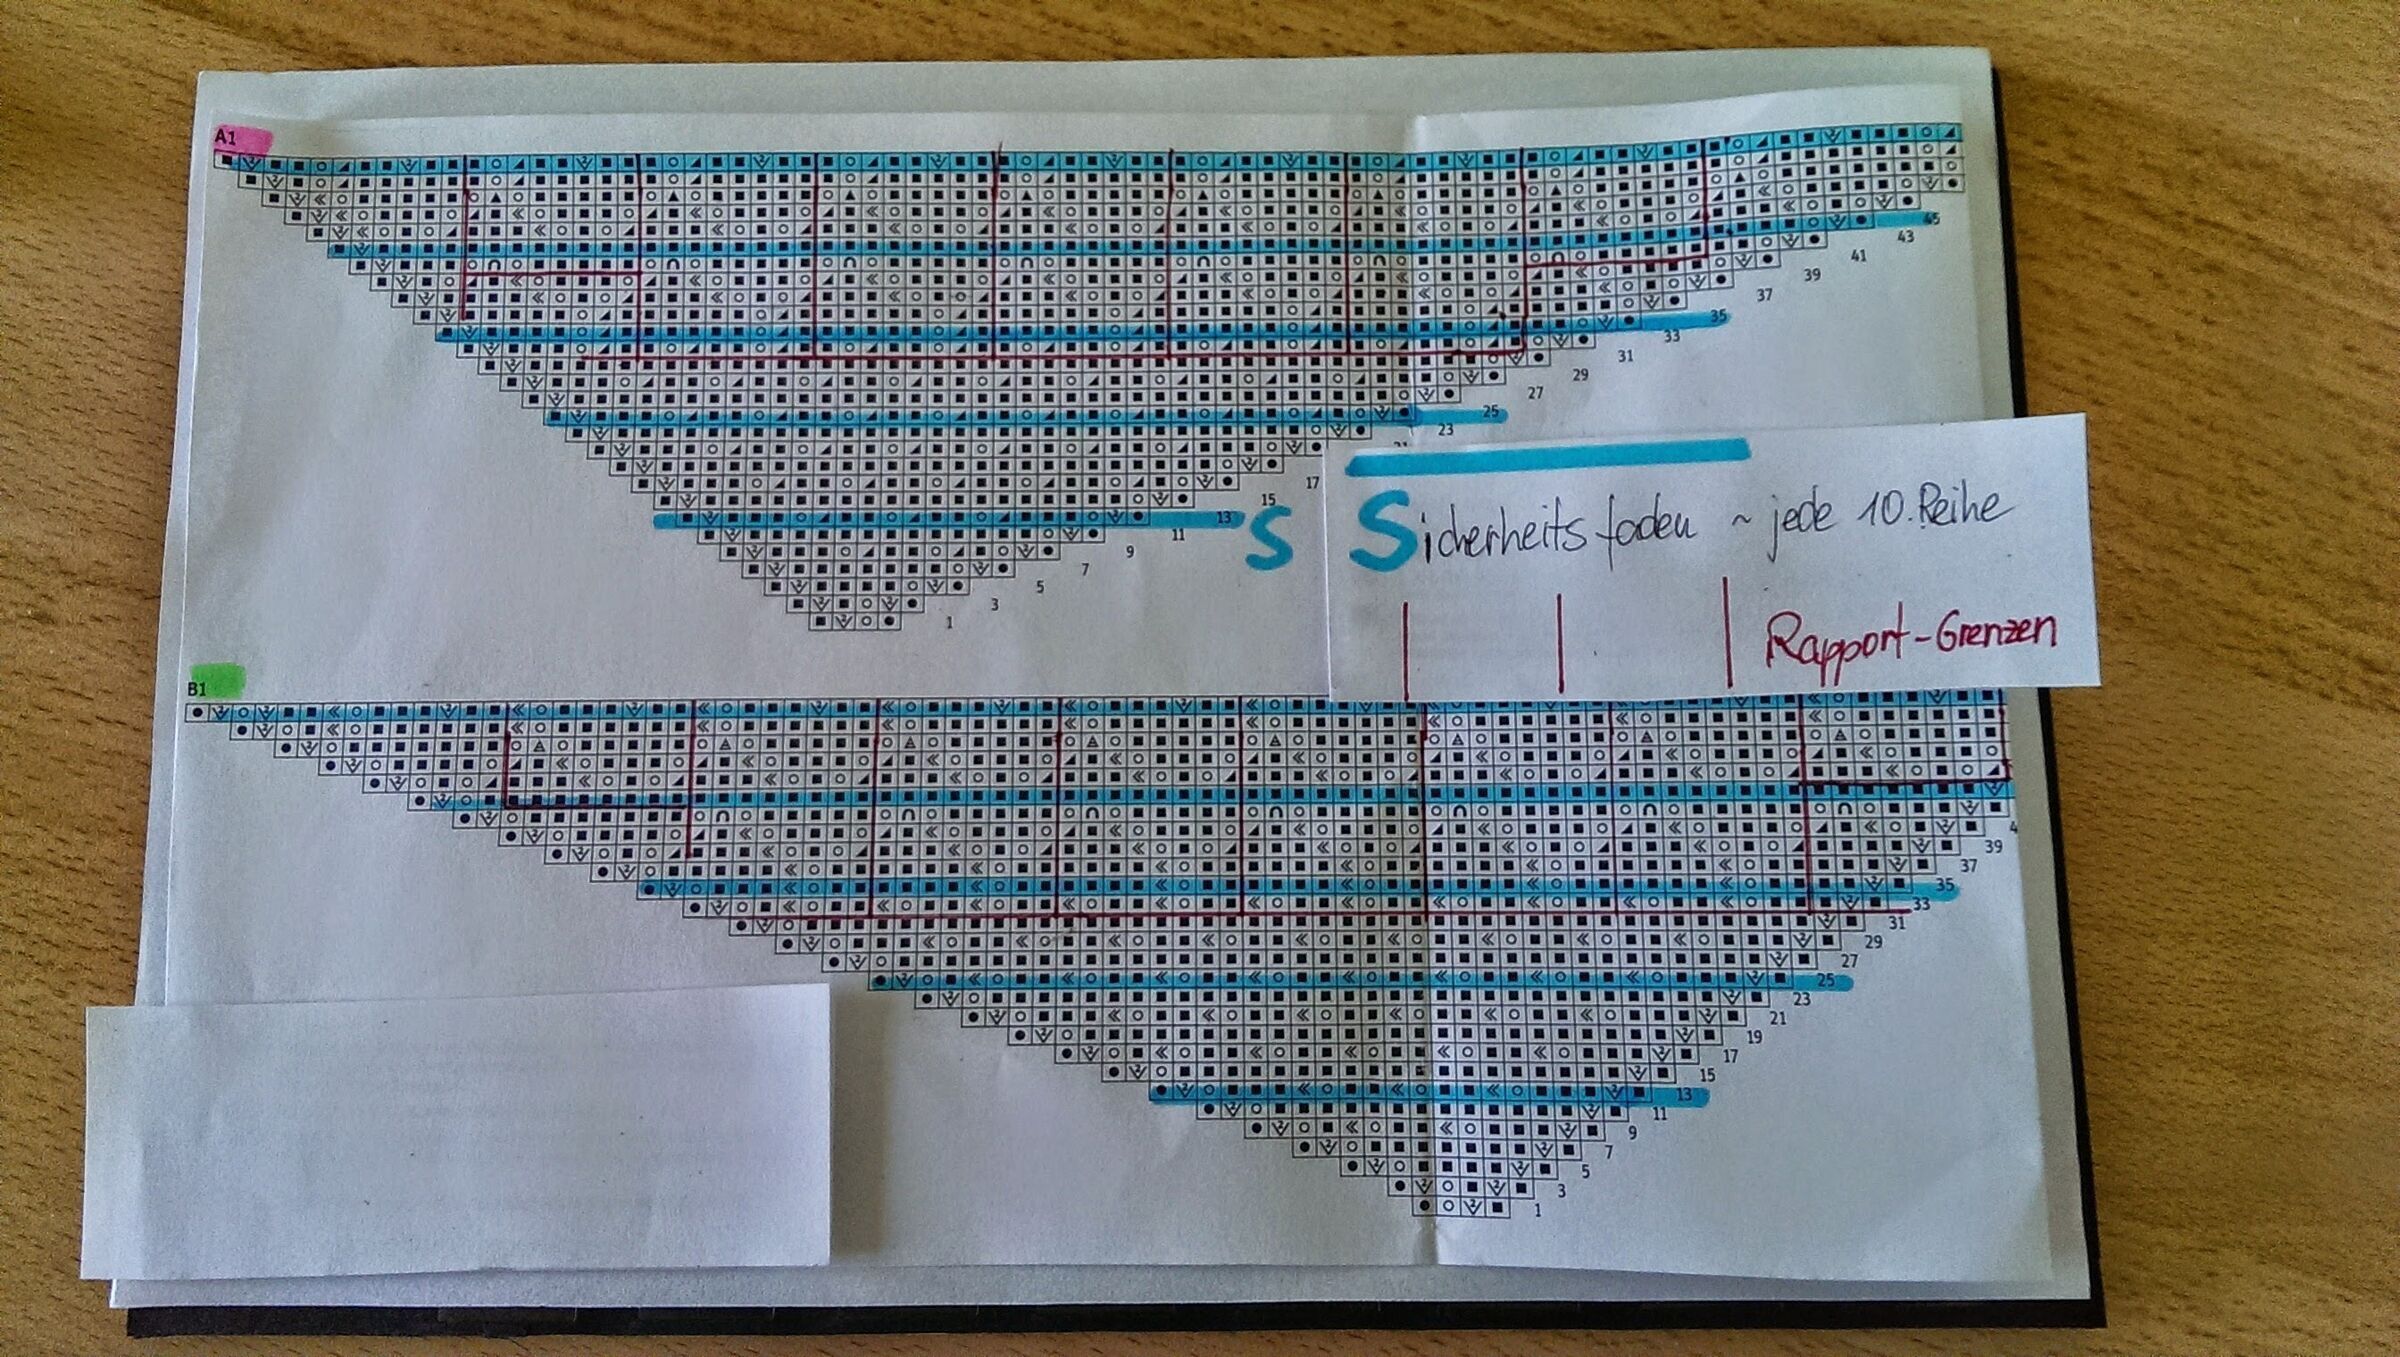 A1
45
43
41
39
37
35
33
31
29
27
25
23
17
15
13
S
11
9
7
5
3
1
Sicherheitsfaden ~ jede 10. Reihe
Rapport-Grenzen
B1
4
39
37
35
33
31
29
27
25
23
21
19
17
15
13
11
9
7
5
3
1